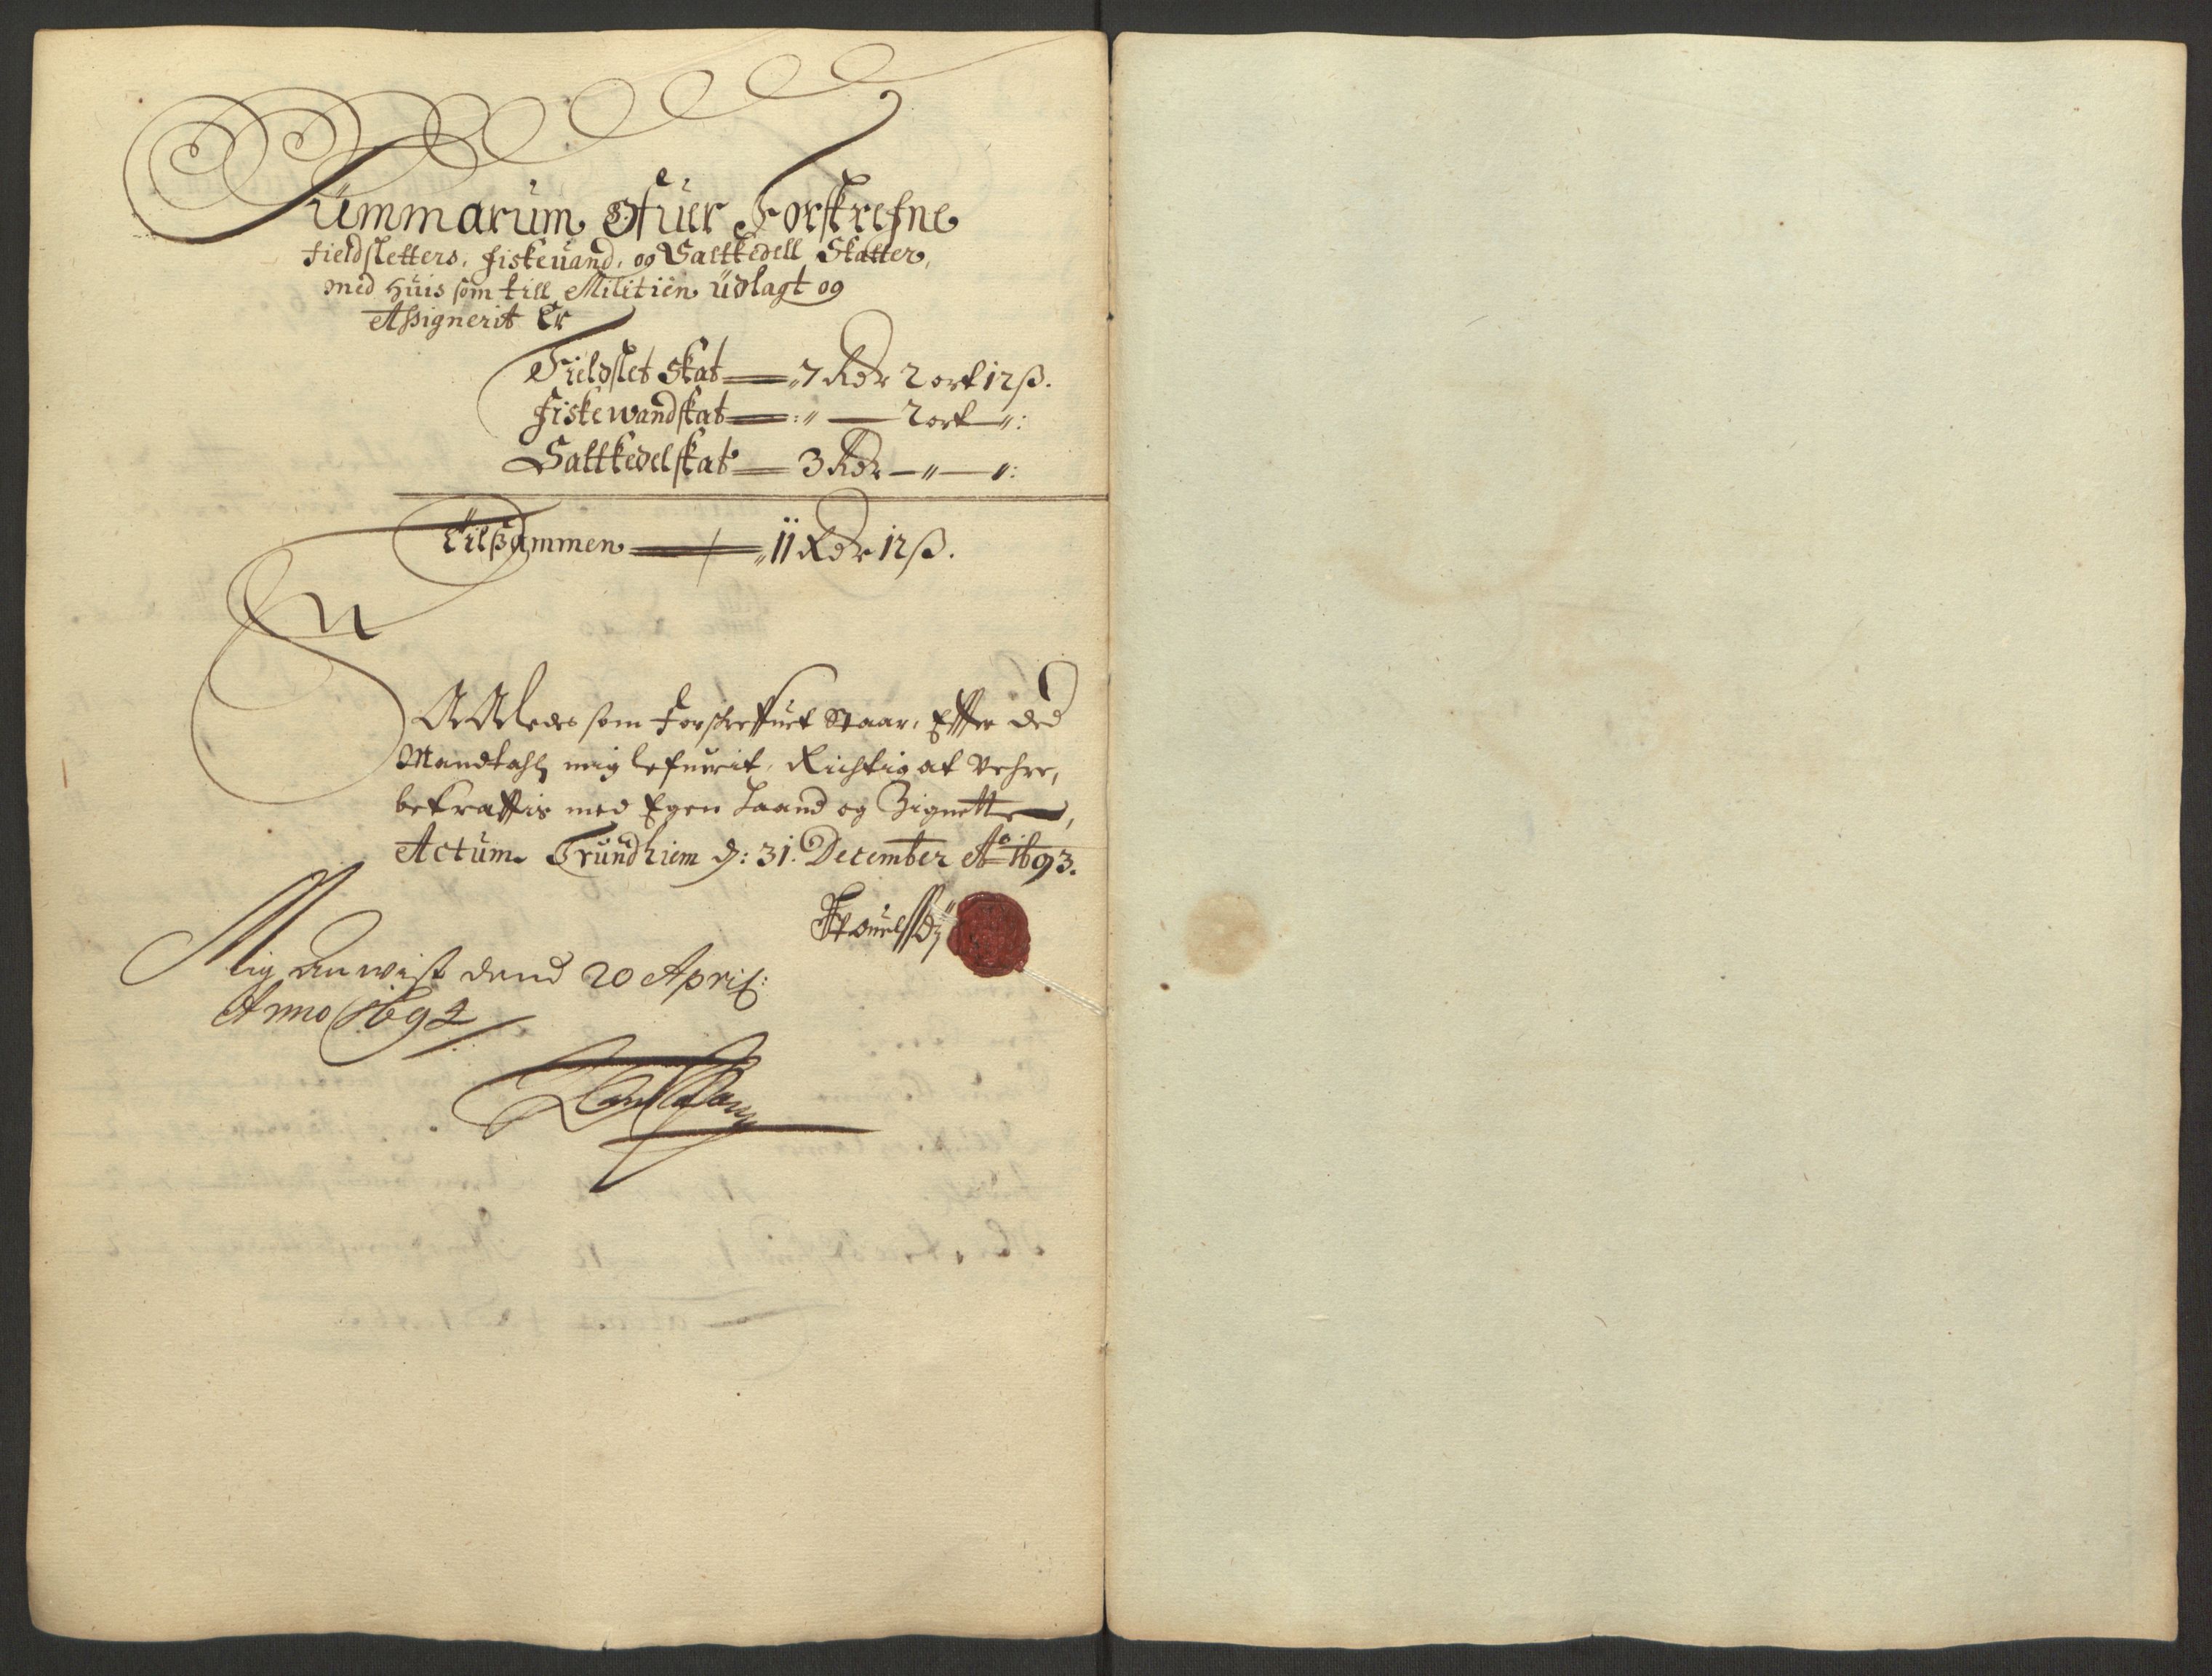 Summarum Ofuer Forskrefne
Fieldsletters, fiskeuand, og Saltkedell Skatter,
med huis som till Militien üdlagt og
Assignerit Er
Fieldslet Skat — 7 Rdr 2 ort 12 ß.
Fiskewandskat — „ — 2 ort — „:
Saltkedelskat — 3 Rdr — „ — „:
Tilsammen — 11 Rdr 12 ß.
Saaledes som Forskreffuet Staar, Effter ded
Mandtahl mig lefuerit, Richtig at vehre,
bekrafftis med Egen Haand og Zignette,
Actum Trundhiem d: 31. December Ao 1693.
Mig anwist dend 20 April:
Anno 1692